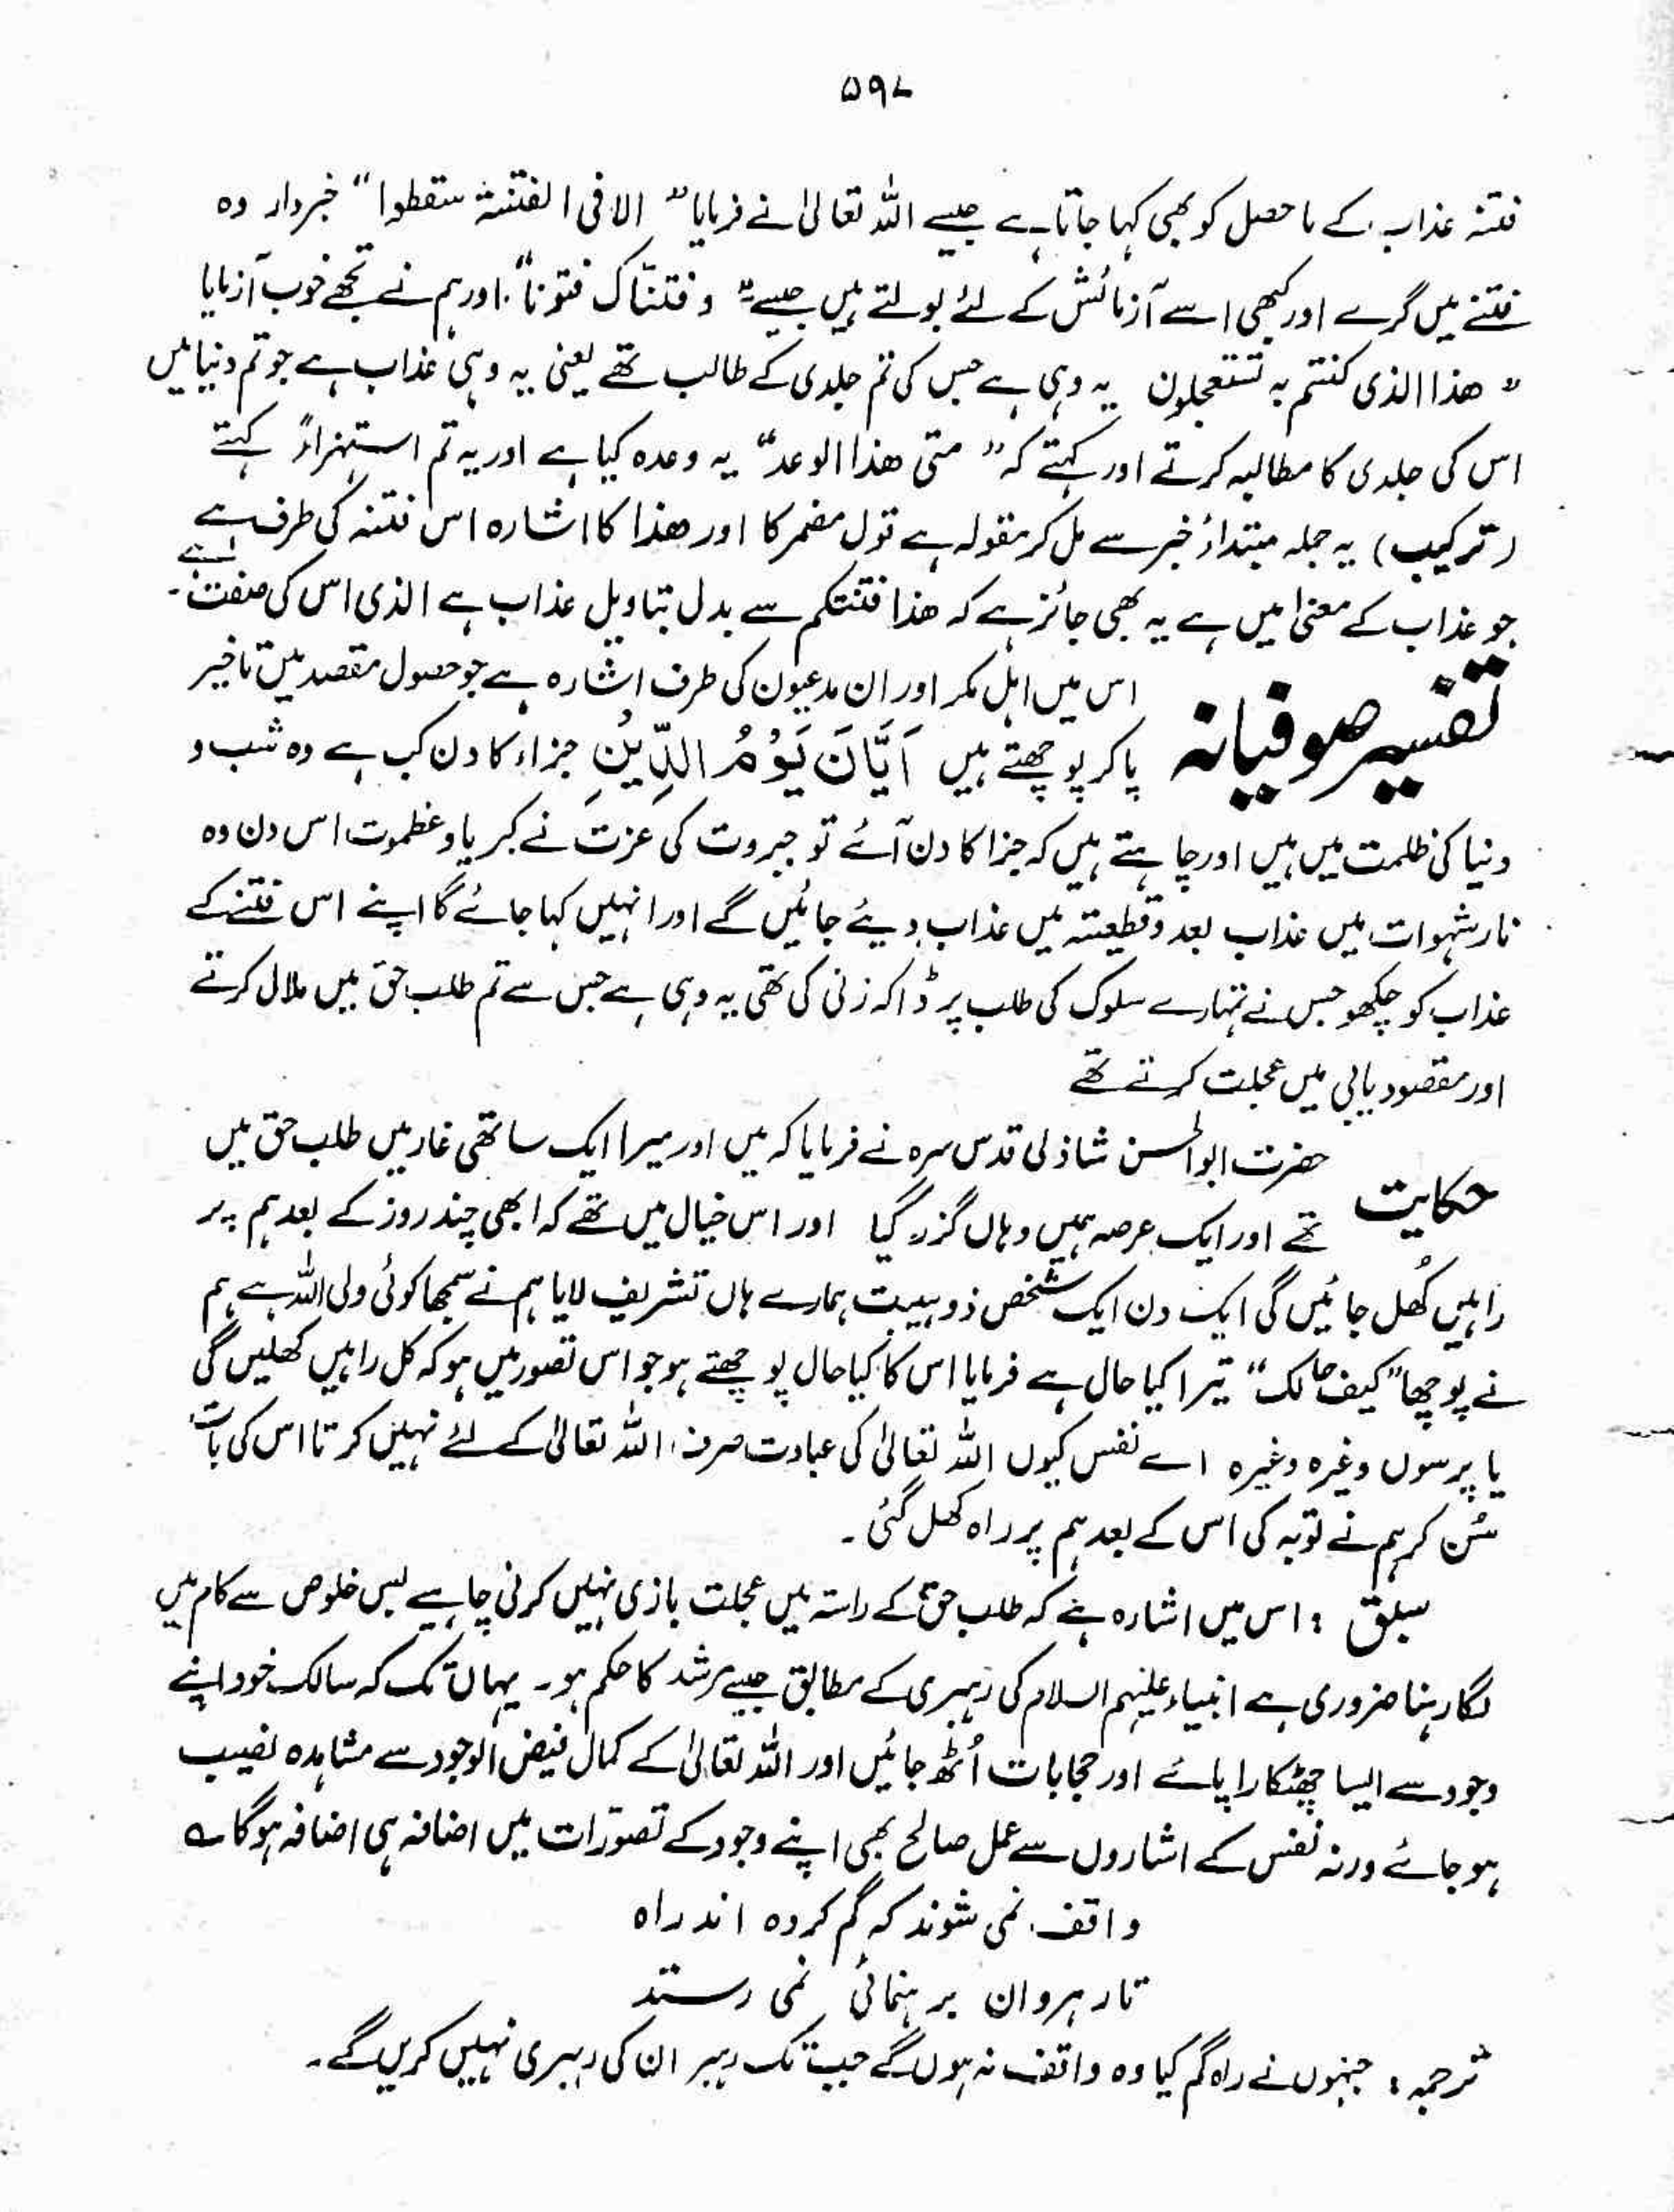 ۵۹۷
فتنہ عذاب کے ماحصل کو بھی کہا جاتا ہے جیسے اللہ تعالیٰ نے فرمایا " الا فی الفتنۃ سقطوا " خبردار وہ
فتنے میں گرے اور کبھی اسے آزمائش کے لئے بولتے ہیں جیسے " و فتنّاک فتونا " اور ہم نے تجھے خوب آزمایا
" ھذا الذی کنتم بہ تستعجلون یہ وہی ہے جس کی تم جلدی کے طالب تھے یعنی یہ وہی عذاب ہے جو تم دنیا میں
اس کی جلدی کا مطالبہ کرتے اور کہتے کہ " متی ھذا الوعد " یہ وعدہ کیا ہے اور یہ تم استہزاءً کہتے
(ترکیب) یہ جملہ مبتداءُ خبر سے مل کر مقولہ ہے قول مضمر کا اور ھذا کا اشارہ اس فتنہ کی طرف ہے
جو عذاب کے معنیٰ میں ہے یہ بھی جائز ہے کہ ھذا فتنتکم سے بدل بتاویل عذاب ہے الذی اس کی صفت ہے ۔
تفسیر صوفیانہ اس میں اہل مکر اور ان مدعیون کی طرف اشارہ ہے جو حصول مقصد میں تاخیر
پا کر پوچھتے ہیں اَیَّانَ یَوْمُ الدِّیْنِ جزاء کا دن کب ہے وہ شب و
دنیا کی ظلمت میں ہیں اور چاہتے ہیں کہ جزا کا دن آئے تو جبروت کی عزت نے کبریا و عظموت اس دن وہ
نار شہوات میں عذاب بعد و قطیعتہ میں عذاب دیئے جائیں گے اور انہیں کہا جائے گا اپنے اس فتنے کے
عذاب کو چکھو جس نے تمہارے سلوک کی طلب پر ڈاکہ زنی کی تھی یہ وہی ہے جس سے تم طلب حق میں ملال کرتے
اور مقصود یابی میں عجلت کرتے تھے
حکایت حضرت ابوالحسن شاذلی قدس سرہ نے فرمایا کہ میں اور میرا ایک ساتھی غار میں طلب حق میں
تھے اور ایک عرصہ ہمیں وہاں گزر گیا اور اس خیال میں تھے کہ ابھی چند روز کے بعد ہم پر
راہیں کُھل جائیں گی ایک دن ایک شخص ذوہیبت ہمارے ہاں تشریف لایا ہم نے سمجھا کوئی ولی اللہ ہے ہم
نے پوچھا " کیف حالک " تیرا کیا حال ہے فرمایا اس کا کیا حال پوچھتے ہو جو اس تصور میں ہو کہ کل راہیں کھلیں گی
یا پرسوں وغیرہ وغیرہ اے نفس کیوں اللہ تعالیٰ کی عبادت صرف اللہ تعالیٰ کے لئے نہیں کرتا اس کی بات
سُن کر ہم نے توبہ کی اس کے بعد ہم پر راہ کھل گئی ۔
سبق : اس میں اشارہ ہے کہ طلب حق کے راستہ میں عجلت بازی نہیں کرنی چاہیے بس خلوص سے کام میں
لگا رہنا ضروری ہے انبیاء علیہم السلام کی رہبری کے مطابق جیسے مرشد کا حکم ہو ۔ یہاں تک کہ سالک خود اپنے
وجود سے ایسا چھٹکارا پائے اور حجابات اُٹھ جائیں اور اللہ تعالیٰ کے کمال فیض الوجود سے مشاہدہ نصیب
ہو جائے ورنہ نفس کے اشاروں سے عمل صالح بھی اپنے وجود کے تصوّرات میں اضافہ ہی اضافہ ہوگا ؎
واقف نمی شوند کہ گم کردہ اند راہ
تا رہروان برہنمائی نمی رسند
ترجمہ : جنہوں نے راہ گم کیا وہ واقف نہ ہوں گے جب تک رہبر ان کی رہبری نہیں کریں گے ۔